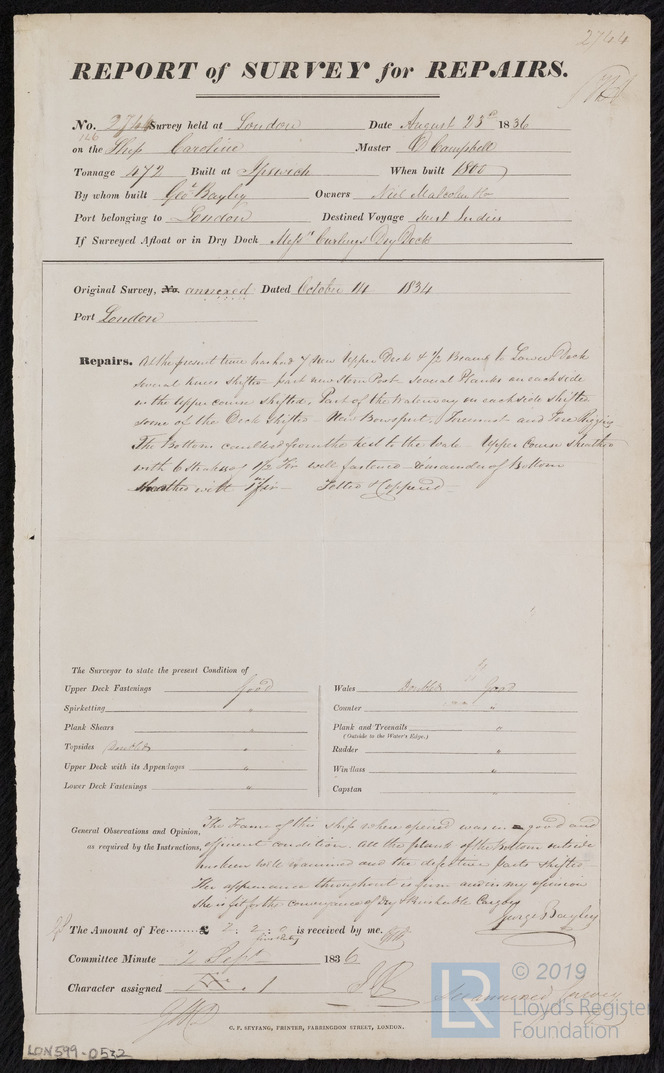 2744
REPORT of SURVEY for REPAIRS.
No. 2744 Survey held at London Date August 23d 1836
on the Ship Caroline Master C Campbell
Tonnage 472 Built at Ipswich When built 1800
By whom built Geoe Bayley Owners Neil Malcolm &Co
Port belonging to London Destined Voyage West Indies
If Surveyed Afloat or in Dry Dock Messrs Curlings Dry Dock
Original Survey, No. annexed Dated October 14 1834
Port London
Repairs. At the present time has had 7 New Upper Deck & 1/2 Beams to Lower Deck
several knees shifted part new Stern Post Several Planks on each side
in the upper course shifted. Part of the Waterway on each side shifted
some of the Deck shifted New Bowsprit, Foremast and Fore Rigging
The Bottom caulked from the keel to the Wale Upper Course sheathed
with 6 Strakes 1 1/2 Fir well fastened remainder of Bottom
sheathed with Fir Felted & Coppered
The Surveyor to state the present Condition of
Upper Deck Fastenings good
Spirketting "
Plank Shears "
Topsides Doubled "
Upper Deck with its Appendages "
Lower Deck Fastenings "
Wales Doubled good
Counter "
Plank and Treenails "
(Outside to the Water's Edge.)
Rudder "
Windlass "
Capstan "
General Observations and Opinion, The Frame of this ship where opened was in good and
as required by the Instructions, efficient condition. All the plank of the Bottom outside
has been well examined and the defective parts shifted
Her appearance throughout is firm and in my opinion
She is fit for the conveyance of Dry & Perishable Cargoes
George Bayley
The Amount of Fee £ 2 : 2 : 0 is received by me,
Committee Minute 2 Sept 1836
Character assigned 1
C. F. SEYFANG, PRINTER, FARRINGDON STREET, LONDON.
LON599-0532
LR
© 2019
Lloyd's Register
Foundation